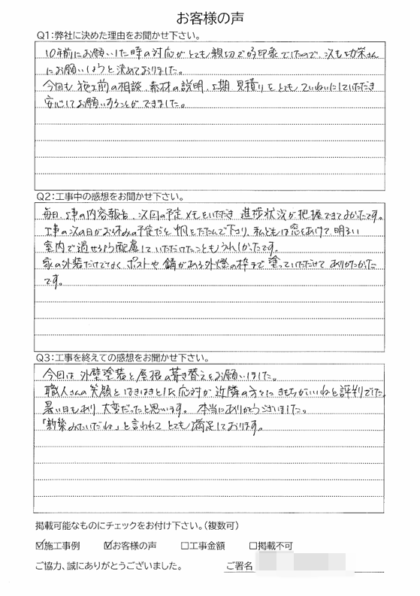 お客様の声
Q1:弊社に決めた理由をお聞かせ下さい。
10年前にお願いした時の対応がとても親切で好印象でしたので、次も功栄さん
にお願いしようと決めておりました。
今回も施工前の相談、素材の説明、工期、見積りを とても ていねいにしていただき
安心してお願いすることができました。
Q2:工事中の感想をお聞かせ下さい。
毎日、工事の内容報告、次回の予定メモをいただき 進捗状況が把握できてよかったです。
工事の次の日がお休みの予定だと 帆をたたんで下さり、私どもは窓をあけて 明るい
室内で過せるよう配慮していただけたこともうれしかったです。
家の外装だけでなく ポストや 錆がある外燈の枠まで 塗っていただけて ありがたかった
です。
Q3:工事を終えての感想をお聞かせ下さい。
今回は 外壁塗装と屋根の葺き替えをお願いしました。
職人さんの笑顔とはきはきとした応対が 近隣の方々に きもちがいいねと評判でした。
暑い日もあり 大変だったと思います。本当にありがとうございました。
「新築みたいだね」と言われて とても 満足しております。
掲載可能なものにチェックをお付け下さい。(複数可)
☑施工事例 ☑お客様の声 □工事金額 □掲載不可
ご協力、誠にありがとうございました。 ご署名